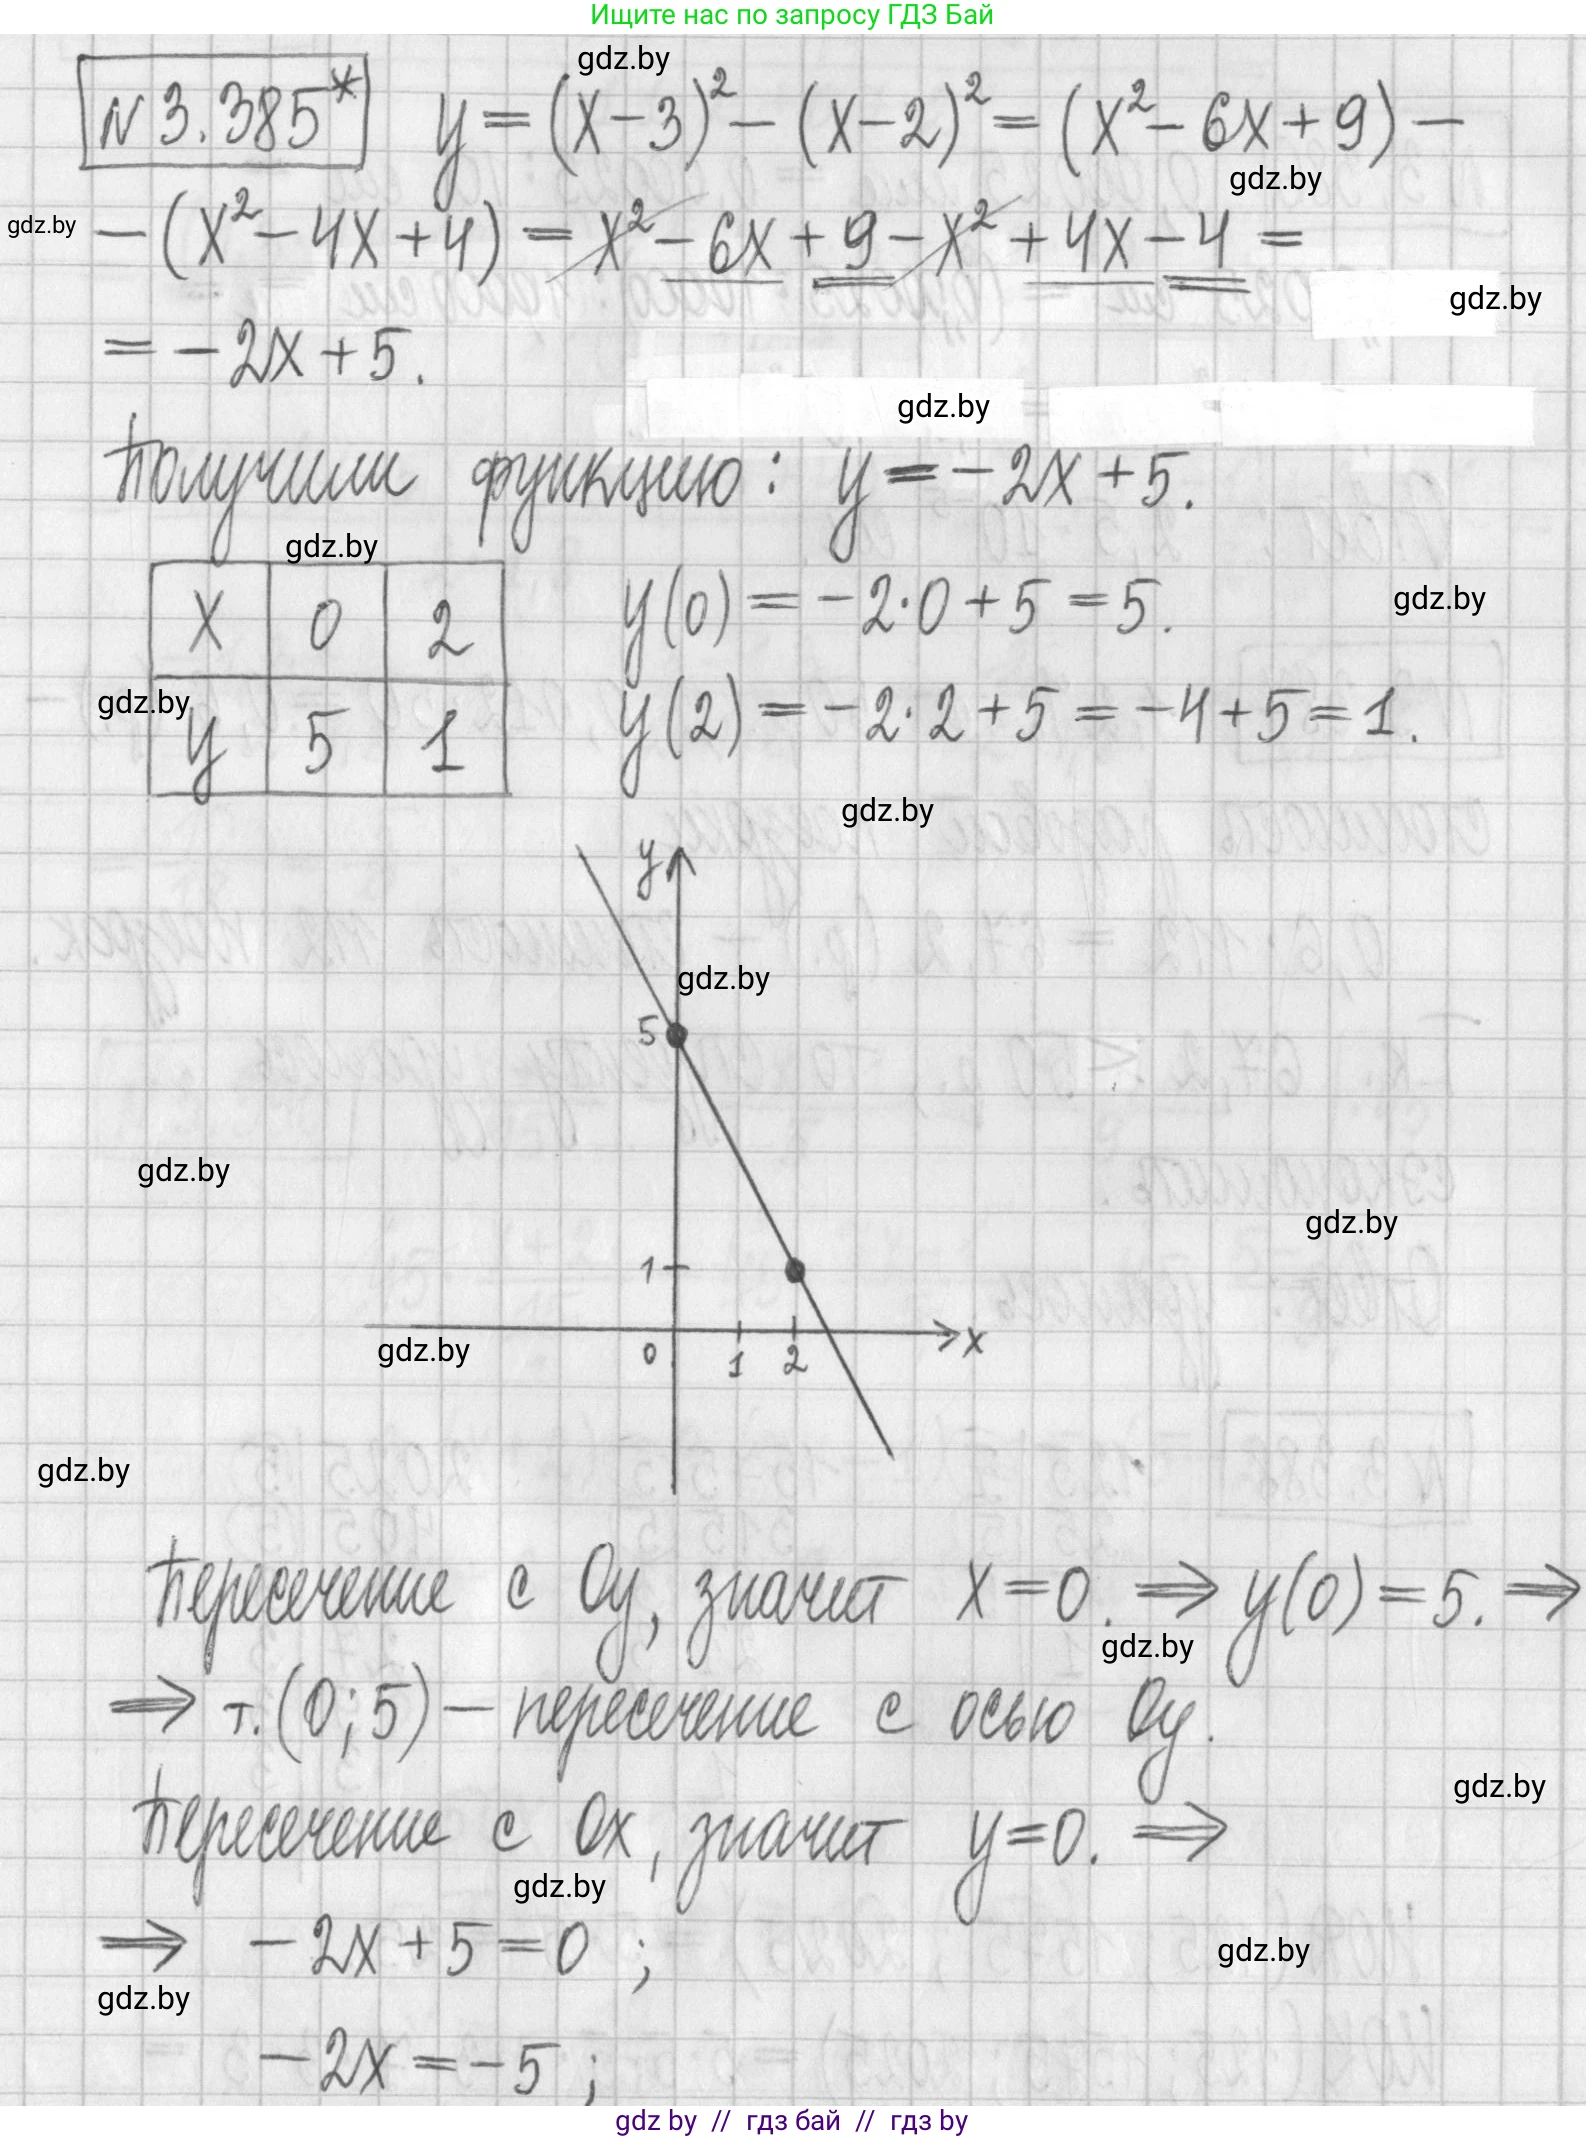 Ищите нас по запросу ГДЗ Бай
gdz.by
N 3.385* y = (x − 3)² − (x − 2)² = (x² − 6x + 9) −
gdz.by
gdz.by − (x² − 4x + 4) = x² − 6x + 9 − x² + 4x − 4 =
gdz.by
= − 2x + 5.
gdz.by
Получили функцию: y = − 2x + 5.
gdz.by
x 0 2 y(0) = − 2·0 + 5 = 5.
gdz.by
gdz.by
y 5 1 y(2) = − 2·2 + 5 = − 4 + 5 = 1.
gdz.by
y
gdz.by
5
gdz.by
gdz.by
1
gdz.by
0 1 2 x
gdz.by
Пересечение с Oy, значит x = 0. ⇒ y(0) = 5. ⇒
gdz.by
⇒ т. (0; 5) − пересечение с осью Oy.
gdz.by
Пересечение с Ox, значит y = 0. ⇒
gdz.by
⇒ − 2x + 5 = 0 ;
gdz.by
gdz.by
− 2x = − 5 ;
gdz by // гдз бай // gdz by